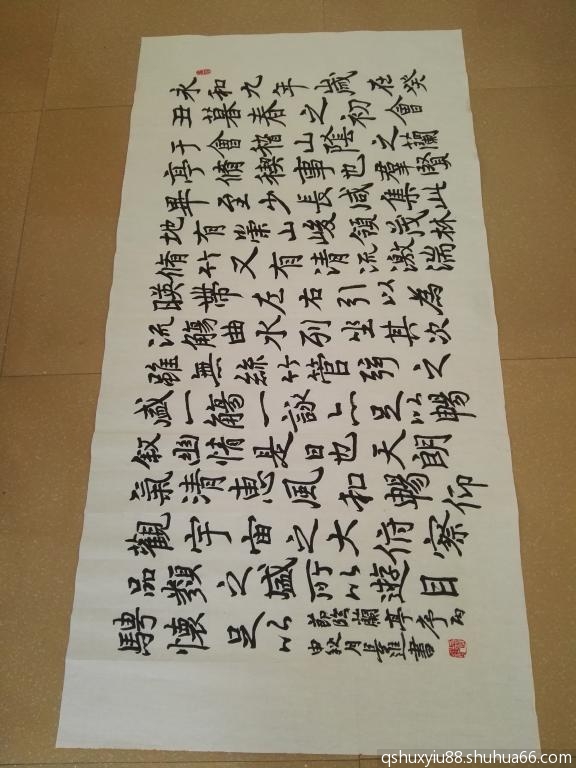 永和九年歲在癸
丑暮春之初會
于會稽山陰之蘭
亭脩禊事也羣賢
畢至少長咸集此
地有崇山峻領茂林
脩竹又有清流激湍
暎帶左右引以為
流觴曲水列坐其次
雖無絲竹管弦之
盛一觴一詠亦足以暢
敘幽情是日也天朗
氣清惠風和暢仰
觀宇宙之大俯察
品類之盛所以遊目
騁懷足以
節臨蘭亭序丙
申秋月長進書
qshuxyiu88.shuhua66.com